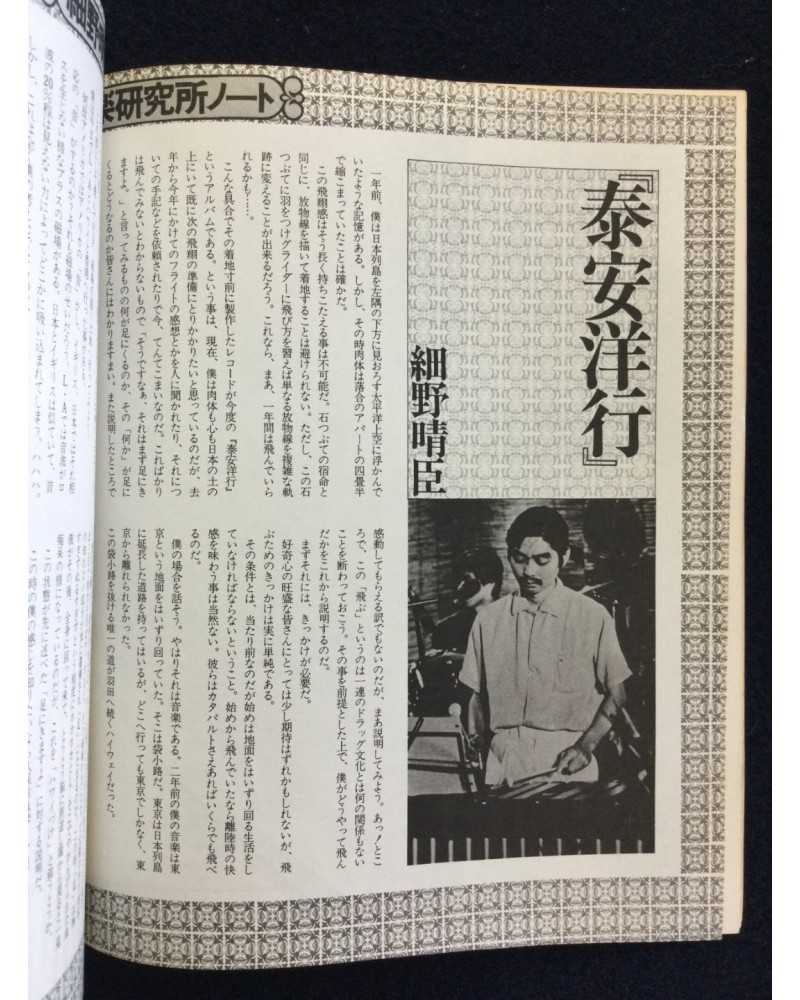 楽研究所ノート
『泰安洋行』
細野晴臣
一年前、僕は日本列島を左隅の下方に見おろす太平洋上空に浮かんで
いたような記憶がある。しかし、その時肉体は落合のアパートの四畳半
で縮こまっていたことは確かだ。
この飛翔感はそう長く持ちこたえる事は不可能だ。石つぶての宿命と
同じに、放物線を描いて着地することは避けられない。ただし、この石
つぶてに羽をつけグライダーに飛び方を習えば単なる放物線を複雑な軌
跡に変えることが出来るだろう。これなら、まあ、一年間は飛んでいら
れるかも……。
こんな具合でその着地寸前に製作したレコードが今度の『泰安洋行』
というアルバムである。という事は、現在、僕は肉体も心も日本の土の
上にいて既に次の飛翔の準備にとりかかりたいと思っているのだが、去
年から今年にかけてのフライトの感想とかを人に聞かれたり、それにつ
いての手記などを依頼されたりで今、てんてこまいなのだ。こればかり
は飛んでみないとわからないもので「そうですなぁ、それはまず足にき
ますよ。」と言ってみるものの何が足にくるのか、その「何か」が足に
くるとどうなるのか皆さんにはわかりますまい。また説明したところで
感動してもらえる訳でもないのだが、まあ説明してみよう。あっ！とこ
ろで、この「飛ぶ」というのは一連のドラッグ文化とは何の関係もない
ことを断わっておこう。その事を前提とした上で、僕がどうやって飛ん
だかをこれから説明するのだ。
まずそれには、きっかけが必要だ。
好奇心の旺盛な皆さんにとっては少し期待はずれかもしれないが、飛
ぶためのきっかけは実に単純である。
その条件とは、当たり前なのだが始めは地面をはいずり回る生活をし
ていなければならないということ。始めから飛んでいたなら離陸時の快
感を味わう事は当然ない。彼らはカタパルトさえあればいくらでも飛べ
るのだ。
僕の場合を話そう。やはりそれは音楽である。二年前の僕の音楽は東
京という地面をはいずり回っていた。そこは袋小路だ。東京は日本列島
に延長した道路を持ってはいるが、どこへ行っても東京でしかなく、東
京から離れられなかった。
この袋小路を抜ける唯一の道が羽田へ続くハイウェイだった。